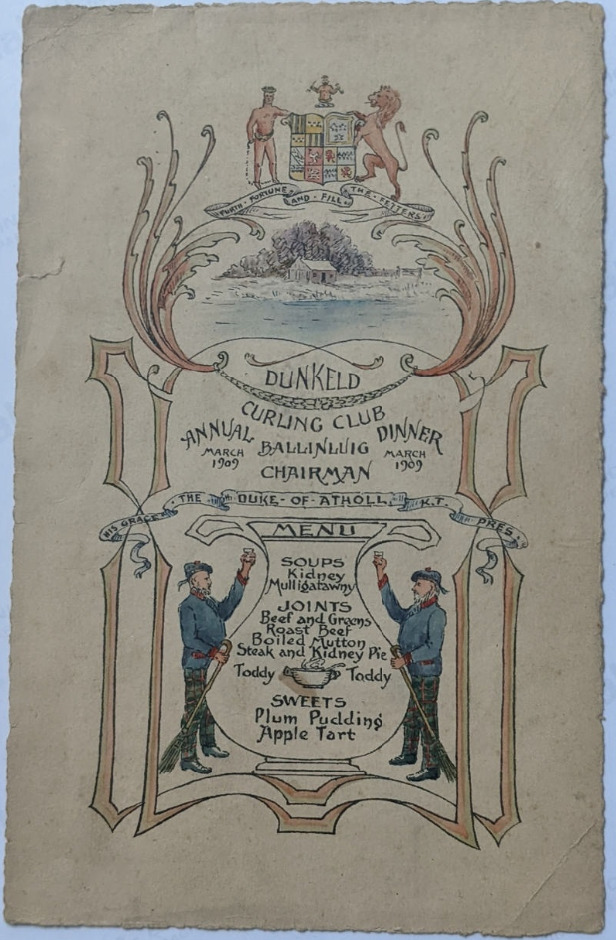 FURTH · FORTUNE · AND · FILL · THE · FETTERS
DUNKELD
CURLING CLUB
ANNUAL BALLINLUIG DINNER
MARCH 1909 MARCH 1909
CHAIRMAN
HIS GRACE THE DUKE · OF · ATHOLL K.T. PRES.
MENU
SOUPS
Kidney
Mulligatawny
JOINTS
Beef and Greens
Roast Beef
Boiled Mutton
Steak and Kidney Pie
Toddy Toddy
SWEETS
Plum Pudding
Apple Tart